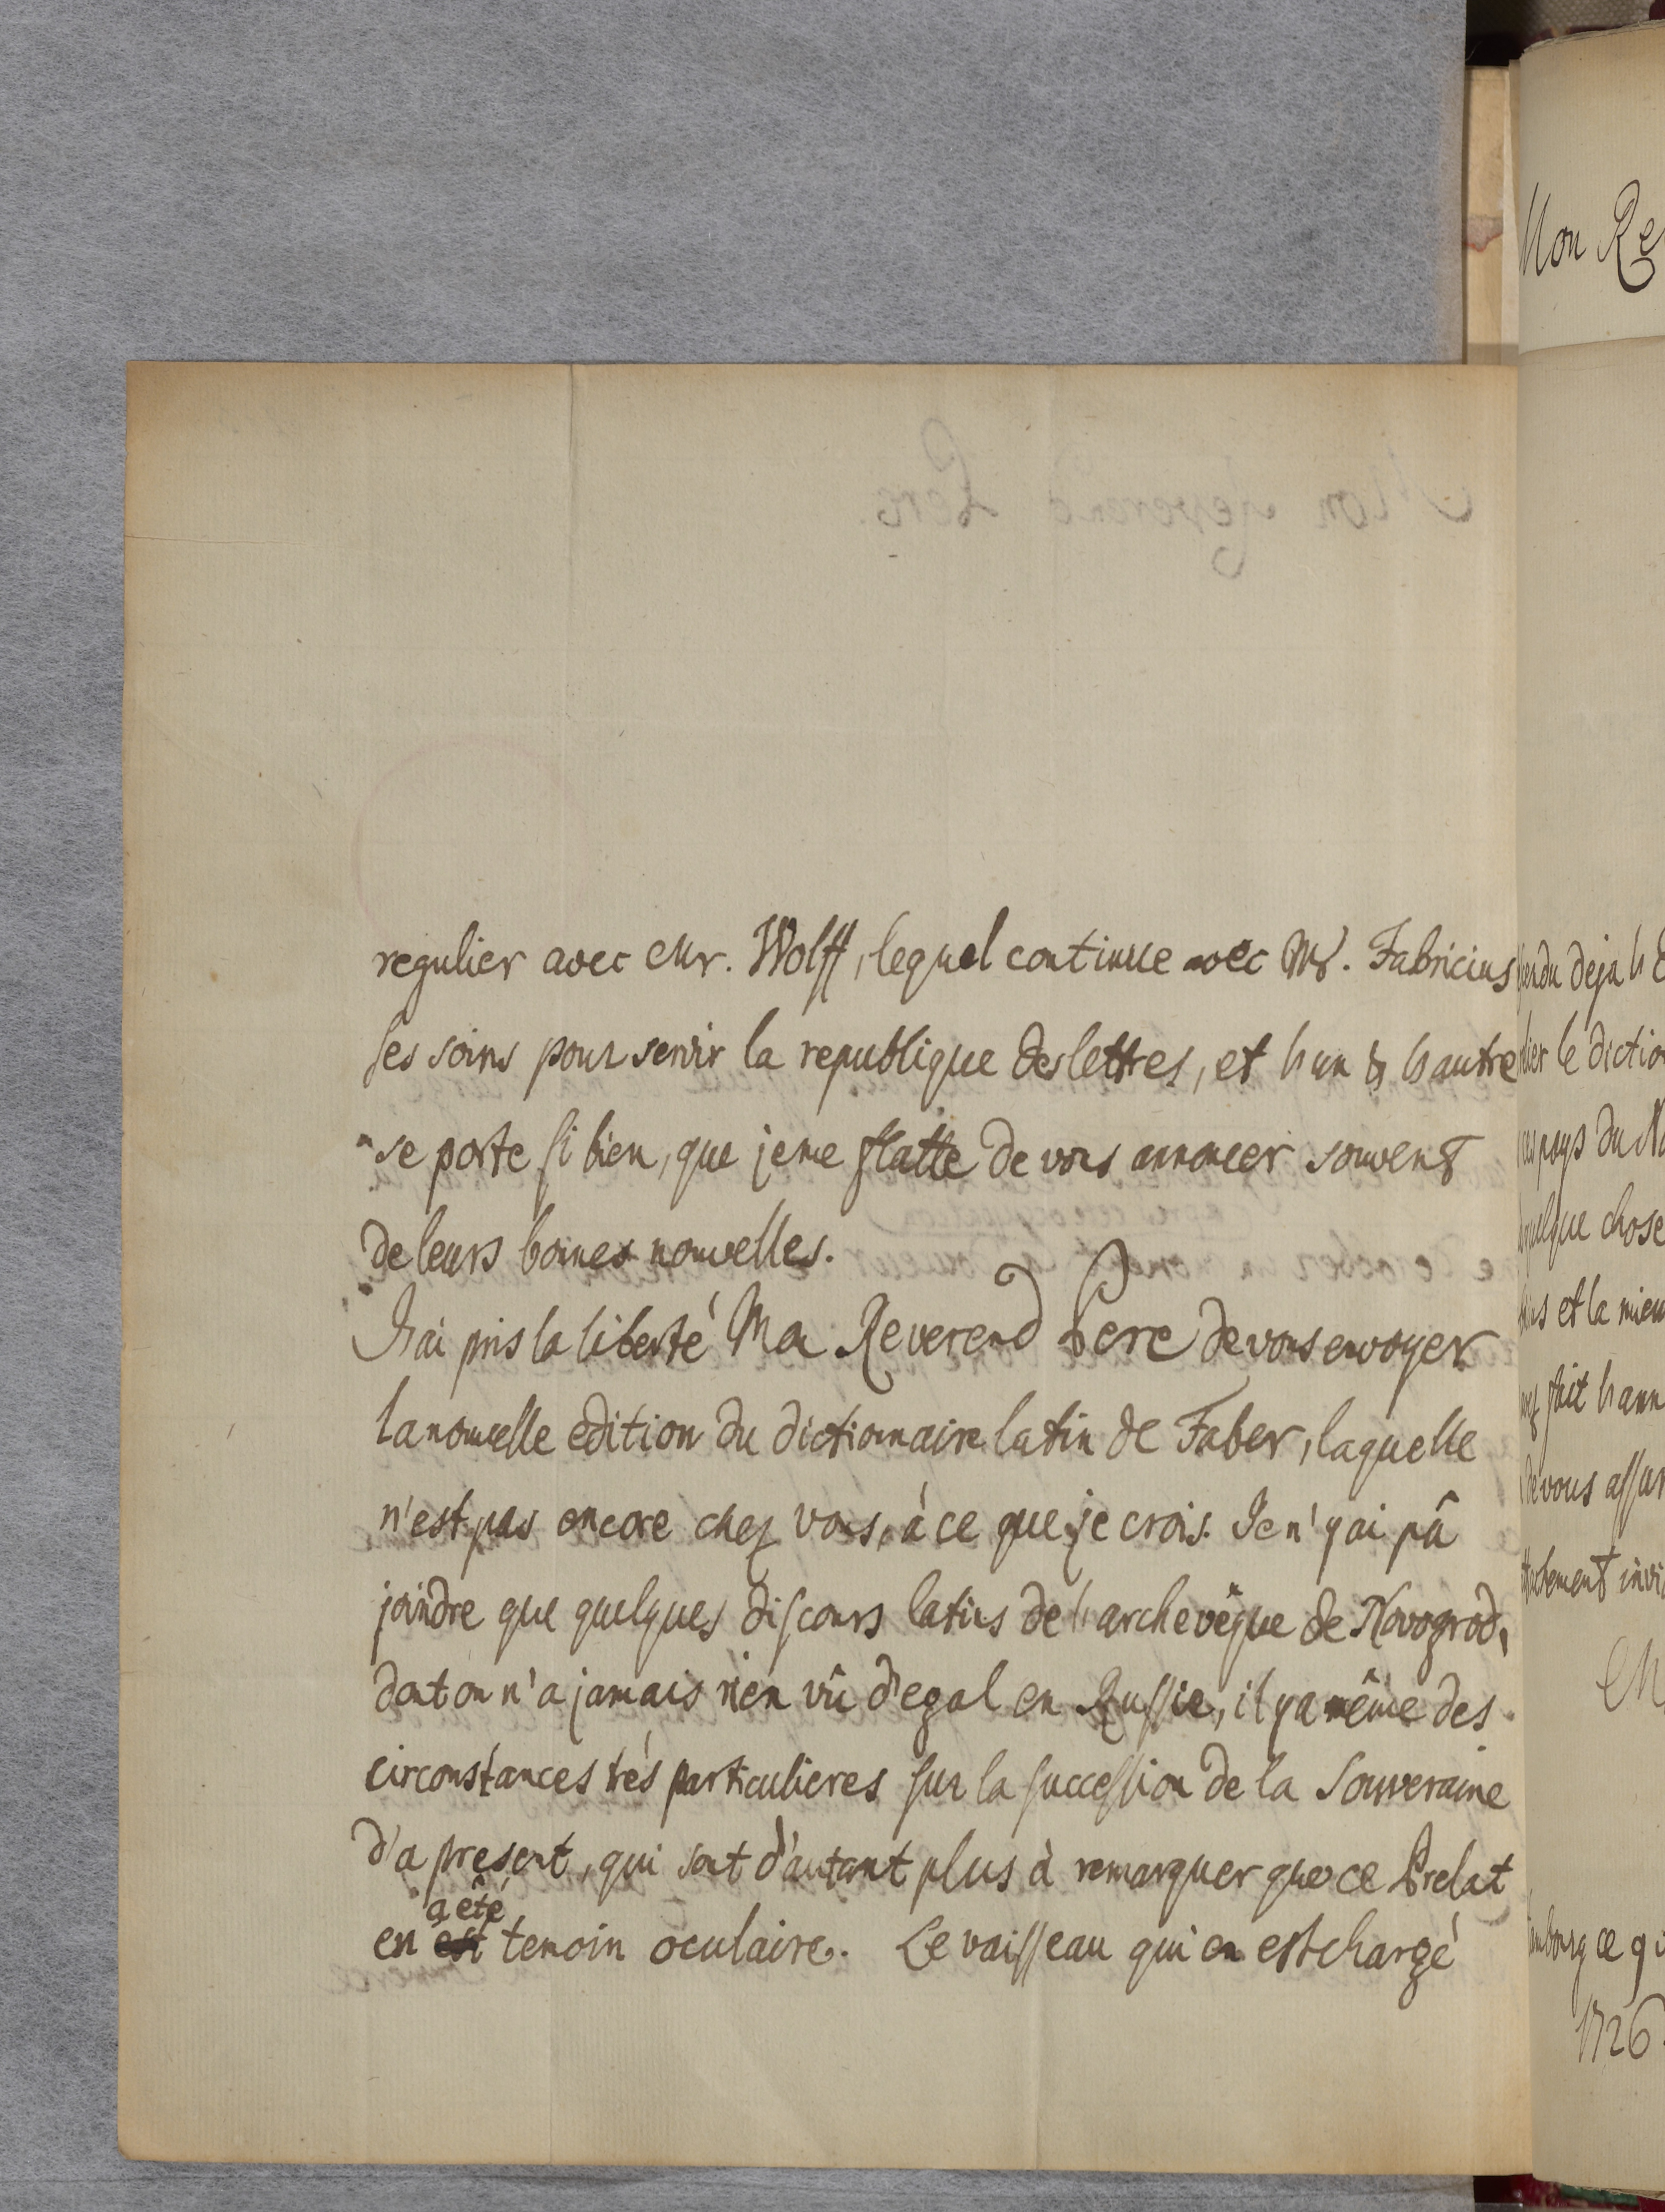 regulier avec Mr. Wolff, lequel continue avec Mr. Fabricius
ses soins pour servir la republique des lettres, et l'un & l'autre
se porte si bien, que je me flatte de vous annoncer souvent
de leurs bonnes nouvelles.
J'ai pris la liberté Mon Reverend Pere de vous envoyer
la nouvelle edition du dictionnaire latin de Faber, laquelle
n'est pas encore chez vous, à ce que je crois. Je n'y ai pû
joindre que quelques discours latins de l'archevêque de Novogrod,
dont on n'a jamais rien vû d'egal en Russie, il y a même des
circonstances trés particulieres sur la succession de la Souveraine
d'a present, qui sont d'autant plus à remarquer que ce Prelat
a été
en est temoin oculaire. Le vaisseau qui en est chargé
Mon Re
deja l'E
le diction
pays du N
quelque chose
et la mien
fait l'ann
de vous assur
M
ce q
1726